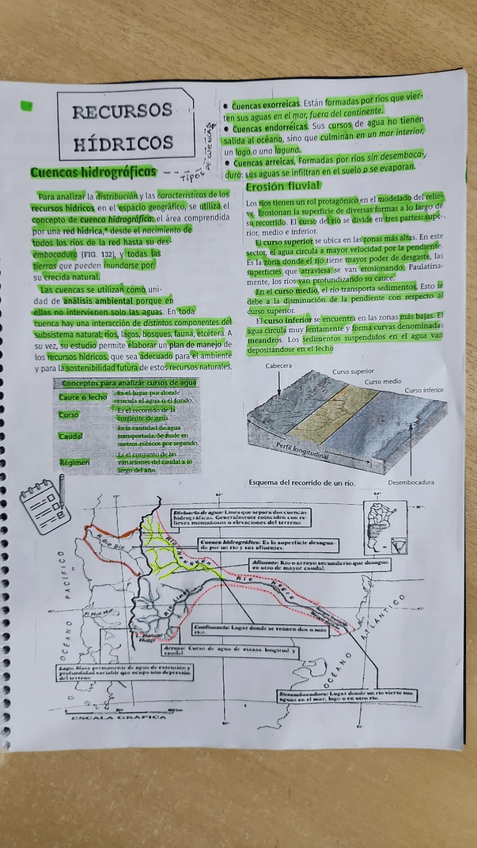 RECURSOS
HÍDRICOS
Cuencas hidrográficas
TIPOS de CUENCAS
Para analizar la distribución y las características de los
recursos hídricos en el espacio geográfico, se utiliza el
concepto de cuenca hidrográfica: el área comprendida
por una red hídrica,* desde el nacimiento de
todos los ríos de la red hasta su des-
embocadura [FIG. 132], y todas las
tierras que pueden inundarse por
su crecida natural.
Las cuencas se utilizan como uni-
dad de análisis ambiental porque en
ellas no intervienen solo las aguas. En toda
cuenca hay una interacción de distintos componentes del
subsistema natural: ríos, lagos, bosques, fauna, etcétera. A
su vez, su estudio permite elaborar un plan de manejo de
los recursos hídricos, que sea adecuado para el ambiente
y para la sostenibilidad futura de estos recursos naturales.
Conceptos para analizar cursos de agua
Cauce o lecho
Es el lugar por donde
circula el agua o el fondo.
Curso
Es el recorrido de la
corriente de agua.
Caudal
Es la cantidad de agua
transportada. Se mide en
metros cúbicos por segundo.
Régimen
Es el conjunto de las
variaciones del caudal a lo
largo del año.
• Cuencas exorreicas. Están formadas por ríos que vier-
ten sus aguas en el mar, fuera del continente.
• Cuencas endorreicas. Sus cursos de agua no tienen
salida al océano, sino que culminan en un mar interior,
un lago o una laguna.
• Cuencas arreicas. Formadas por ríos sin desemboca-
dura: sus aguas se infiltran en el suelo o se evaporan.
Erosión fluvial
Los ríos tienen un rol protagónico en el modelado del relie-
ve. Erosionan la superficie de diversas formas a lo largo de
su recorrido. El curso del río se divide en tres partes: supe-
rior, medio e inferior.
El curso superior se ubica en las zonas más altas. En este
sector, el agua circula a mayor velocidad por la pendiente.
Es la zona donde el río tiene mayor poder de desgaste, las
superficies que atraviesa se van erosionando. Paulatina-
mente, los ríos van profundizando su cauce.
En el curso medio, el río transporta sedimentos. Esto se
debe a la disminución de la pendiente con respecto al
curso superior.
El curso inferior se encuentra en las zonas más bajas. El
agua circula muy lentamente y forma curvas denominadas
meandros. Los sedimentos suspendidos en el agua van
depositándose en el lecho
Cabecera
Curso superior
Curso medio
Curso inferior
Perfil longitudinal
Esquema del recorrido de un río.
Desembocadura
Divisoria de agua: Línea que separa dos cuencas
hidrográficas. Generalmente coinciden con re-
lieves montañosos o elevaciones del terreno.
Cuenca hidrográfica: Es la superficie desagua-
da por un río y sus afluentes.
Afluente: Río o arroyo secundario que desagua
en otro de mayor caudal.
Río Neuquén
Río Negro
Río Limay
OCÉANO PACÍFICO
L. Nahuel
Huapi
Confluencia: Lugar donde se reúnen dos o más
ríos.
Arroyo: Curso de agua de escasa longitud y
caudal.
Lago: Masa permanente de agua de extensión y
profundidad variable que ocupa una depresión
del terreno.
OCÉANO ATLÁNTICO
Desembocadura: Lugar donde un río vierte sus
aguas en el mar, lago o en otro río.
ESCALA GRÁFICA